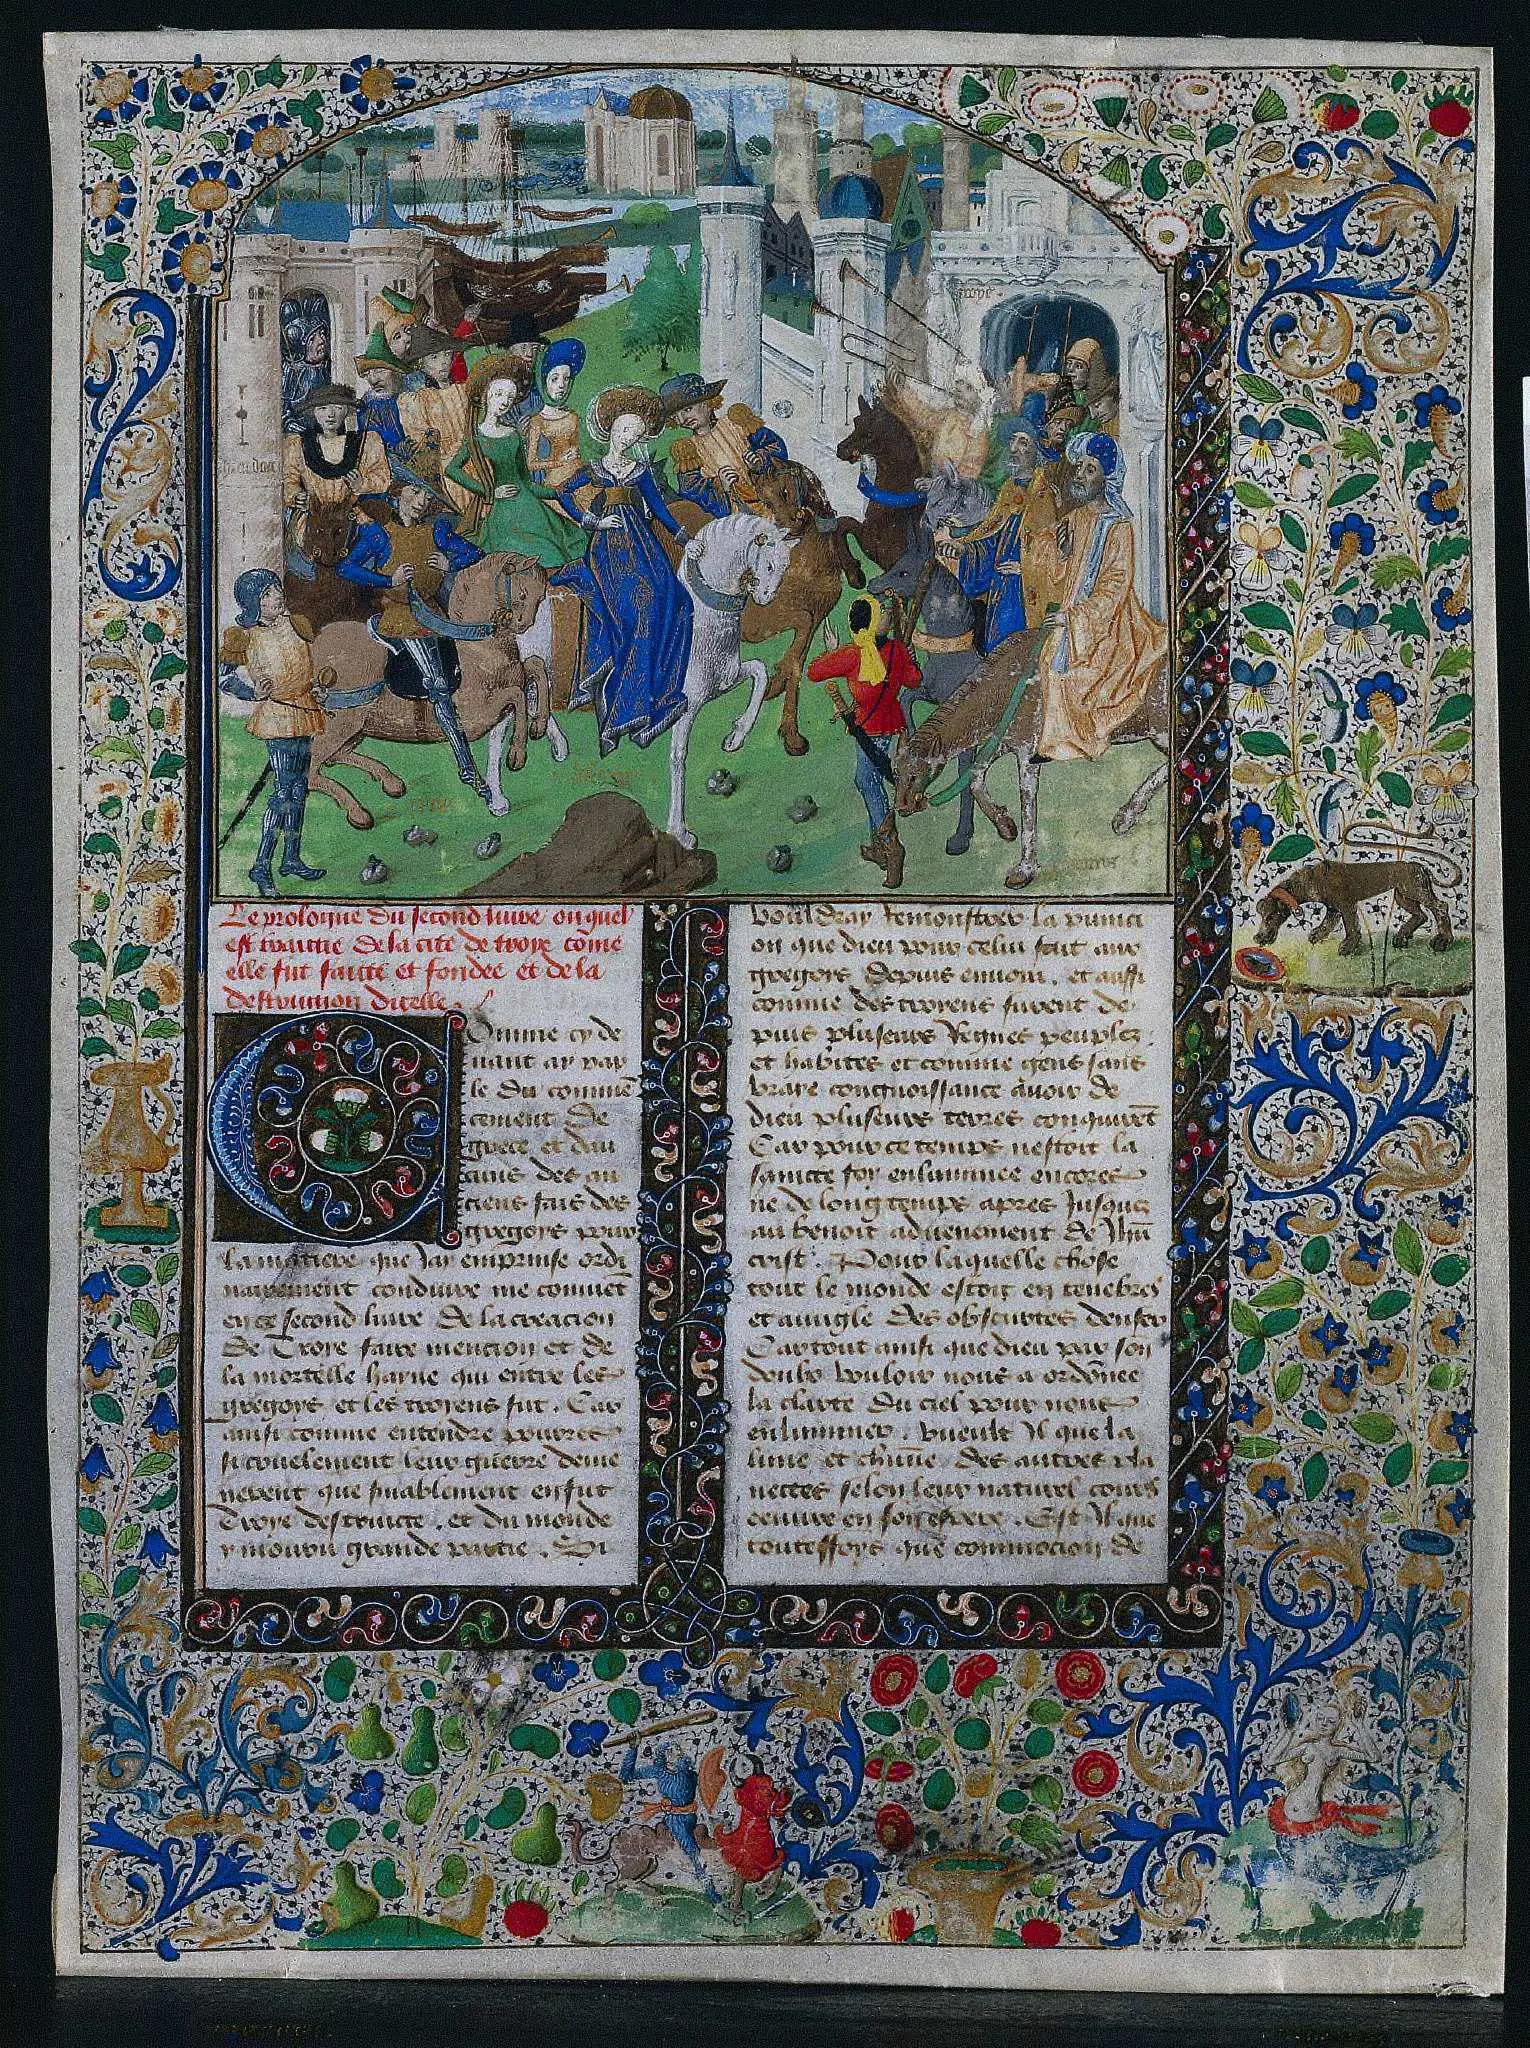 troye
Le prologue du second livre ouquel
est traictie de la cite de troye cōme
elle fut faicte et fondee et de la
destruction dicelle.
Comme cy de
uant ay par
le du comme
cement de
grece et dau
cuns des an
ciens fais des
gregois pour
la matiere que Jay emprinse ordi
nairement conduire me conuiēt
en ce second liure de la creacion
de Troye faire mencion et de
la mortelle hayne qui entre les
gregoys et les troyens fut. Car
ainsi comme entendre pourres
si cruelement leur guerre deme
nerent que finablement en fut
Troye destruicte. et du monde
y mouru grande partie. Si
vouldray remonstrer la punici
on que dieu pour celui fait aux
gregois depuis enuoia. et aussi
comme des troyens furent de
puis pluseurs Regnes peuplez
et habites et comme gens sans
vraye congnoissance auoir de
dieu pluseurs terres conquirēt
Car pour ce temps nestoit la
saincte foy enluminee encores
ne de long temps apres Jusques
au benoit aduenement de Jhū
crist. Pour laquelle chose
tout le monde estoit en tenebres
et auugle des obscurtes denfer
Car tout ainsi que dieu par son
doulx vouloir nous a ordōnee
la clarte du ciel pour nous
enluminer. vueult Il que la
lune et chūne des autres pla
nettes selon leur naturel cours
oeuure en son espere. Est Il que
touteffoys que commocion de